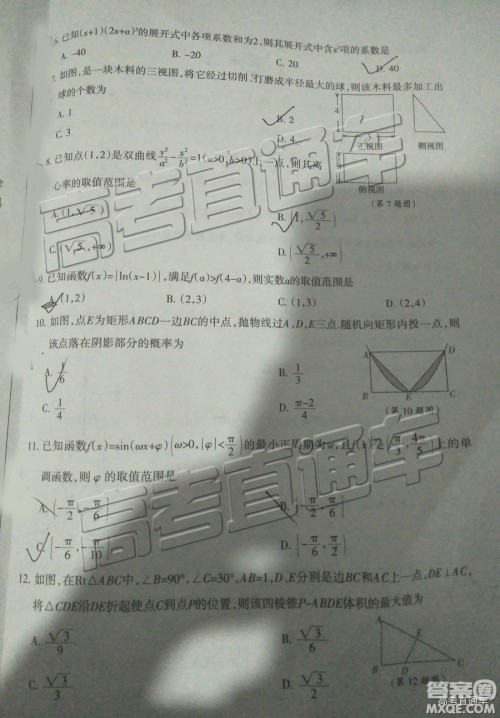 6. 已知(x+1)(2x+a)⁵的展开式中各项系数和为2,则其展开式中含x³项的系数是
A. -40 B. -20 C. 20 D. 40
7. 如图,是一块木料的三视图,将它经过切削、打磨成半径最大的球,则该木料最多加工出
球的个数为
A. 1 B. 2
C. 3 D. 4
正视图 侧视图
俯视图
(第7题图)
8. 已知点(1,2)是双曲线y²/a²-x²/b²=1(a>0,b>0)上一点,则其离
心率的取值范围是
A. (1,√5) B. (1,√5/2)
C. (√5,+∞) D. (√5/2,+∞)
9. 已知函数f(x)=|ln(x-1)|,满足f(a)>f(4-a),则实数a的取值范围是
A. (1,2) B. (2,3) C. (1,3) D. (2,4)
10. 如图,点E为矩形ABCD一边BC的中点,抛物线过A,D,E三点.随机向矩形内投一点,则
该点落在阴影部分的概率为
A. 1/6 B. 1/3
C. 1/4 D. (π-2)/4
A D
B E C
(第10题图)
11. 已知函数f(x)=sin(ωx+φ)(ω>0,|φ|<π/2)的最小正周期为π,且f(x)是[π/3,4π/5]上的单
调函数,则φ的取值范围是
A. [-π/2,-π/6] B.
C. [-π/6,-π/10] D. [-π/6,π/2]
12. 如图,在Rt△ABC中,∠B=90°,∠C=30°,AB=1,D,E分别是边BC和AC上一点,DE⊥AC,
将△CDE沿DE折起使点C到点P的位置,则该四棱锥P-ABDE体积的最大值为
A. √3/9 B. √3/6
C. √3/3 D.
A
E
B D C
(第12题图)
高考直通车
高考直通车
高考直通车
答案圈
MXQE.COM